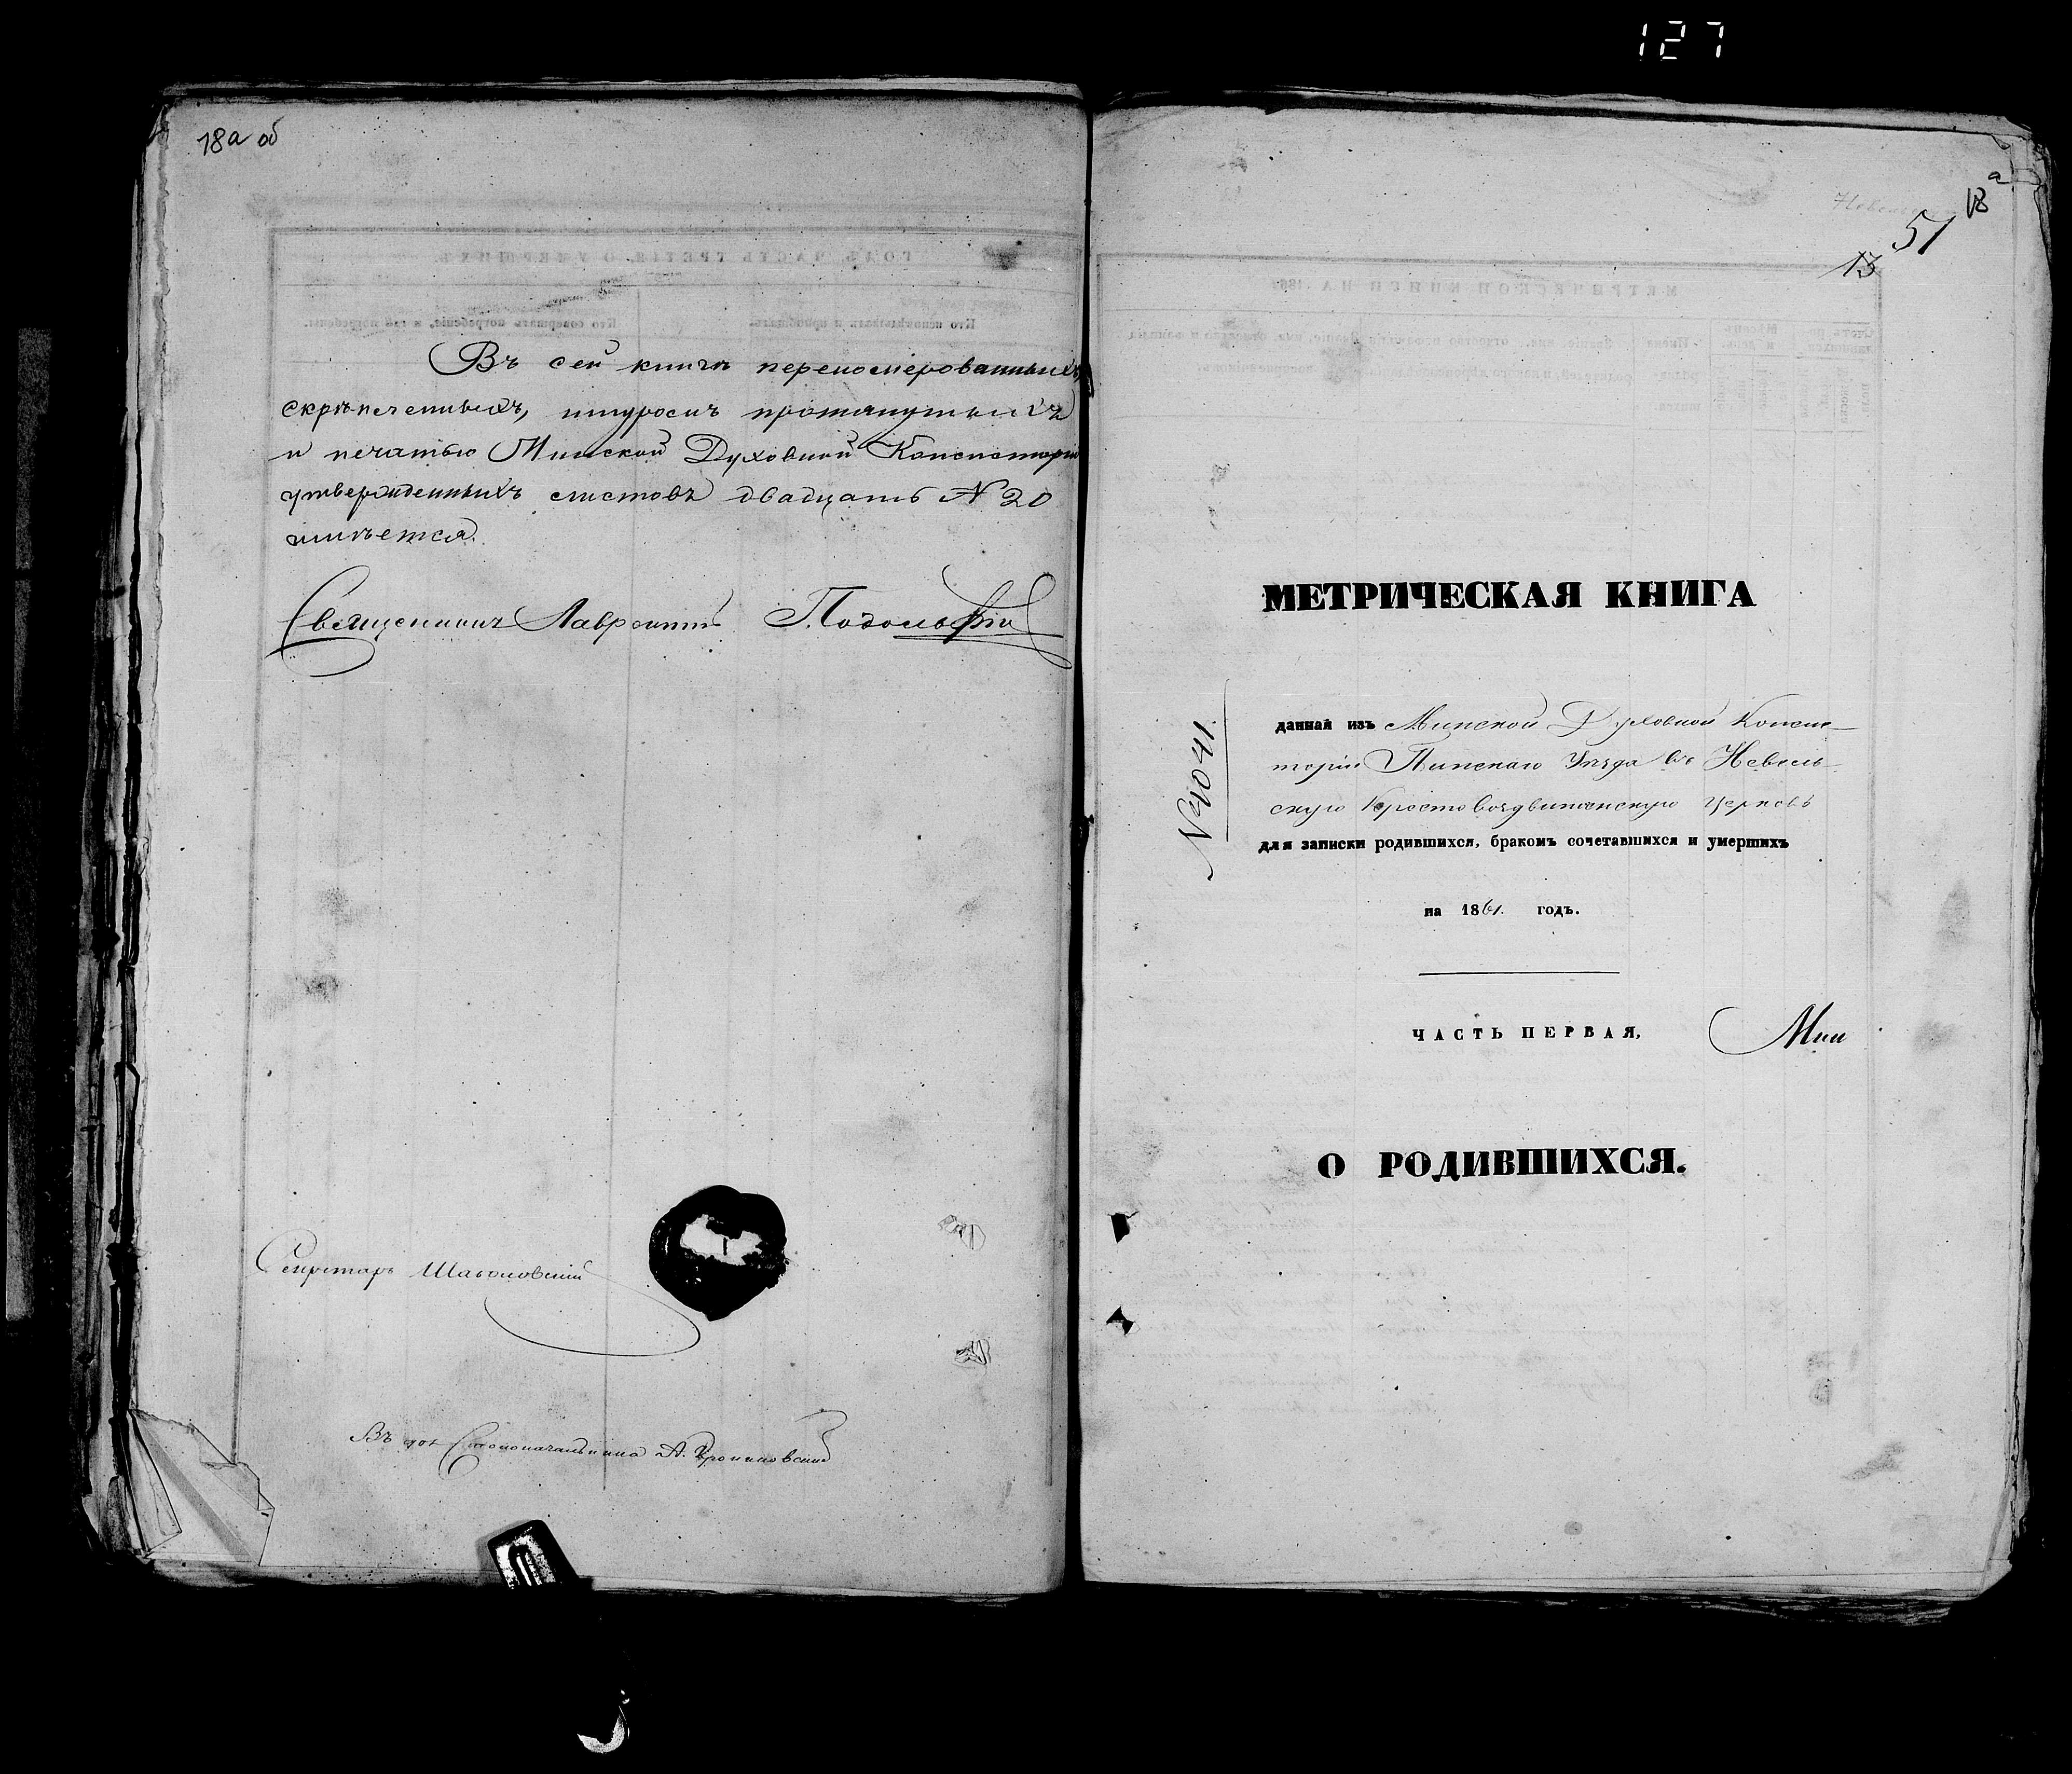 127
18а об
Въ сей книгѣ перенумерованныхъ,
скрѣпленныхъ, шнуромъ протянутыхъ
и печатью Минской Духовной Консисторіи
утвержденныхъ листовъ двадцать N 20
имѣется.
Священникъ Лаврентій
Секретарь
Столоначальника А.
18 а
51
13
МЕТРИЧЕСКАЯ КНИГА
данная изъ Минской Духовной Консис-
торіи Пинскаго Уѣзда въ Невель-
скую Крестовоздвиженскую Церковь
для записки родившихся, бракомъ сочетавшихся и умершихъ
на 1861. годъ.
ЧАСТЬ ПЕРВАЯ,
Мин
О РОДИВШИХСЯ.